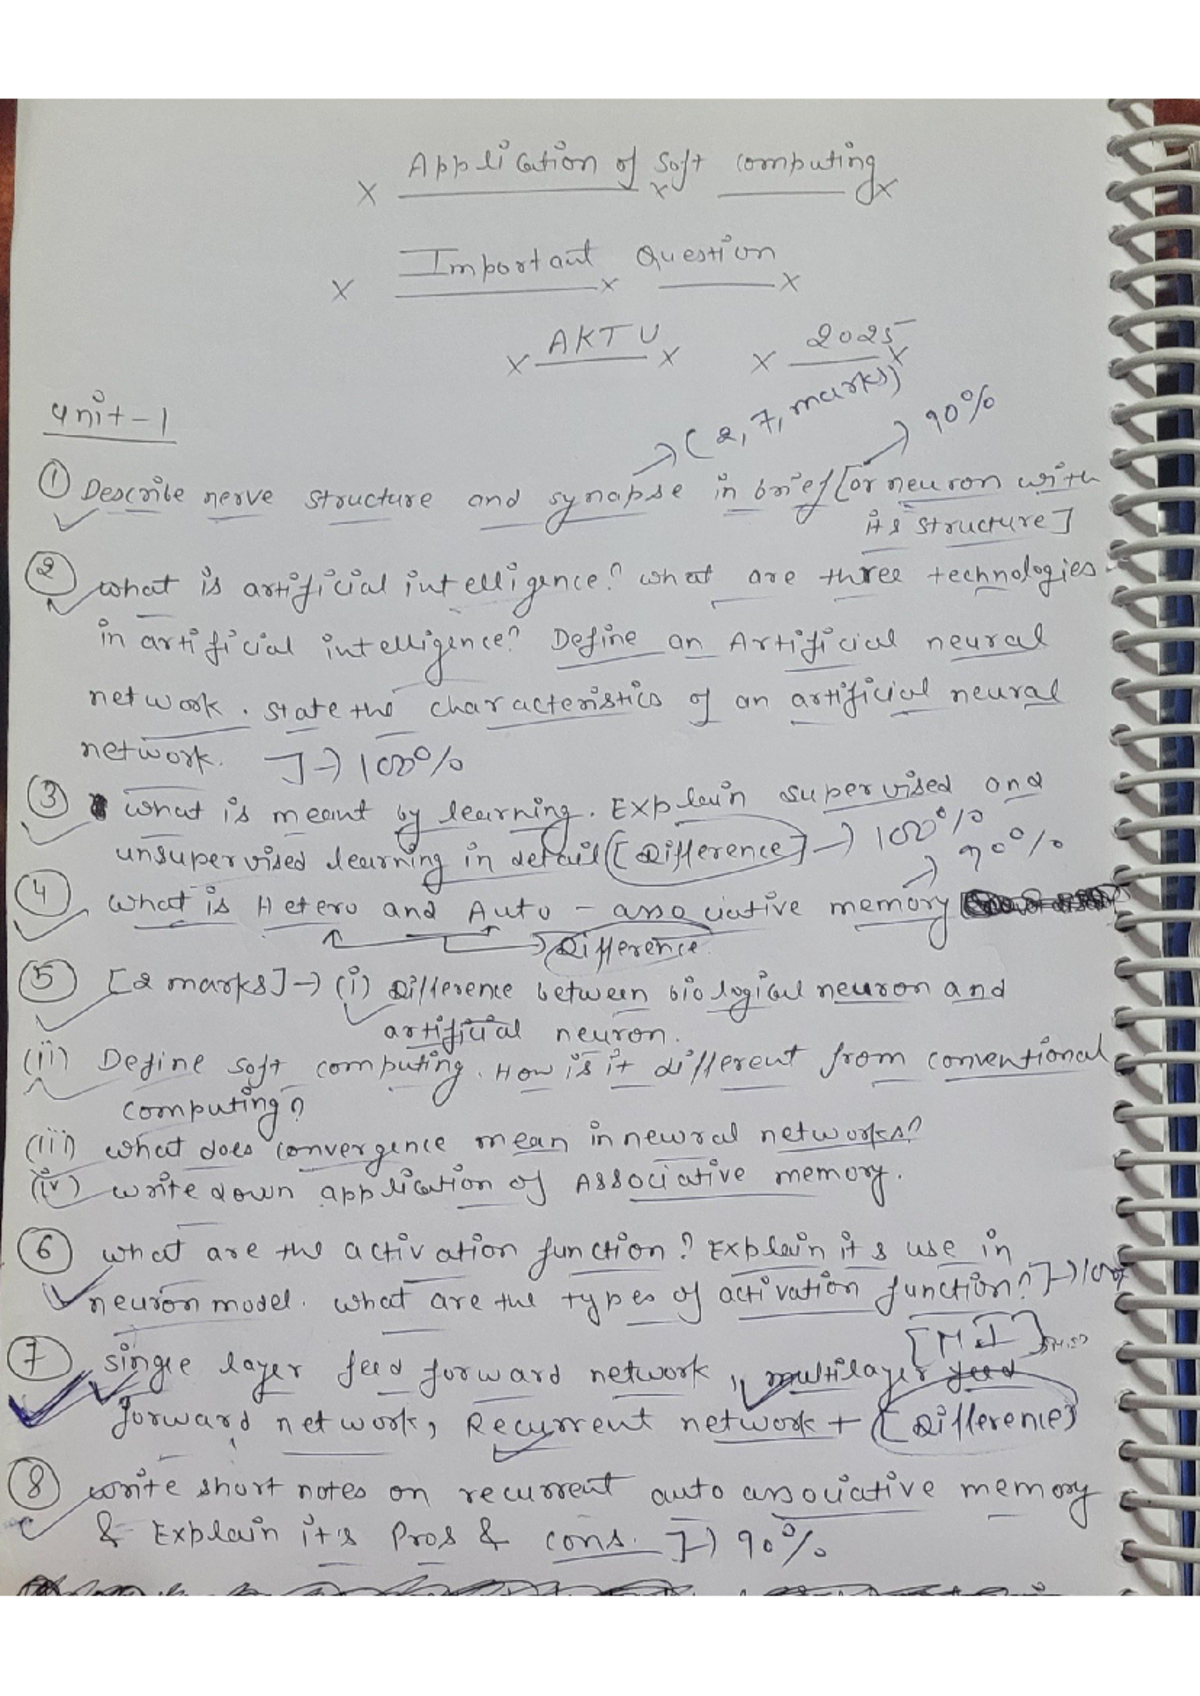 Application of Soft computing
Important Question
AKTU 2025
Unit-1
→ (2, 7, marks) → 90%
① Describe nerve structure and synapse in brief [or neuron with
its structure]
② what is artificial intelligence? what are three technologies
in artificial intelligence? Define an Artificial neural
network. State the characteristics of an artificial neural
network. ] → 100%
③ what is meant by learning. Explain supervised and
unsupervised learning in detail [Difference] → 100%
④ what is Hetero and Auto-associative memory → 90%
→ Difference
⑤ [2 marks] → (i) Difference between biological neuron and
artificial neuron.
(ii) Define soft computing. How is it different from conventional
computing?
(iii) what does convergence mean in neural networks?
(iv) write down application of Associative memory.
⑥ what are the activation function? Explain it's use in
neuron model. what are the types of activation function? ] → 100%
[M.I]
⑦ single layer feed forward network, multilayer feed
forward network, Recurrent network + [Difference]
⑧ write short notes on recurrent auto associative memory
& Explain it's Pros & cons. ] → 90%